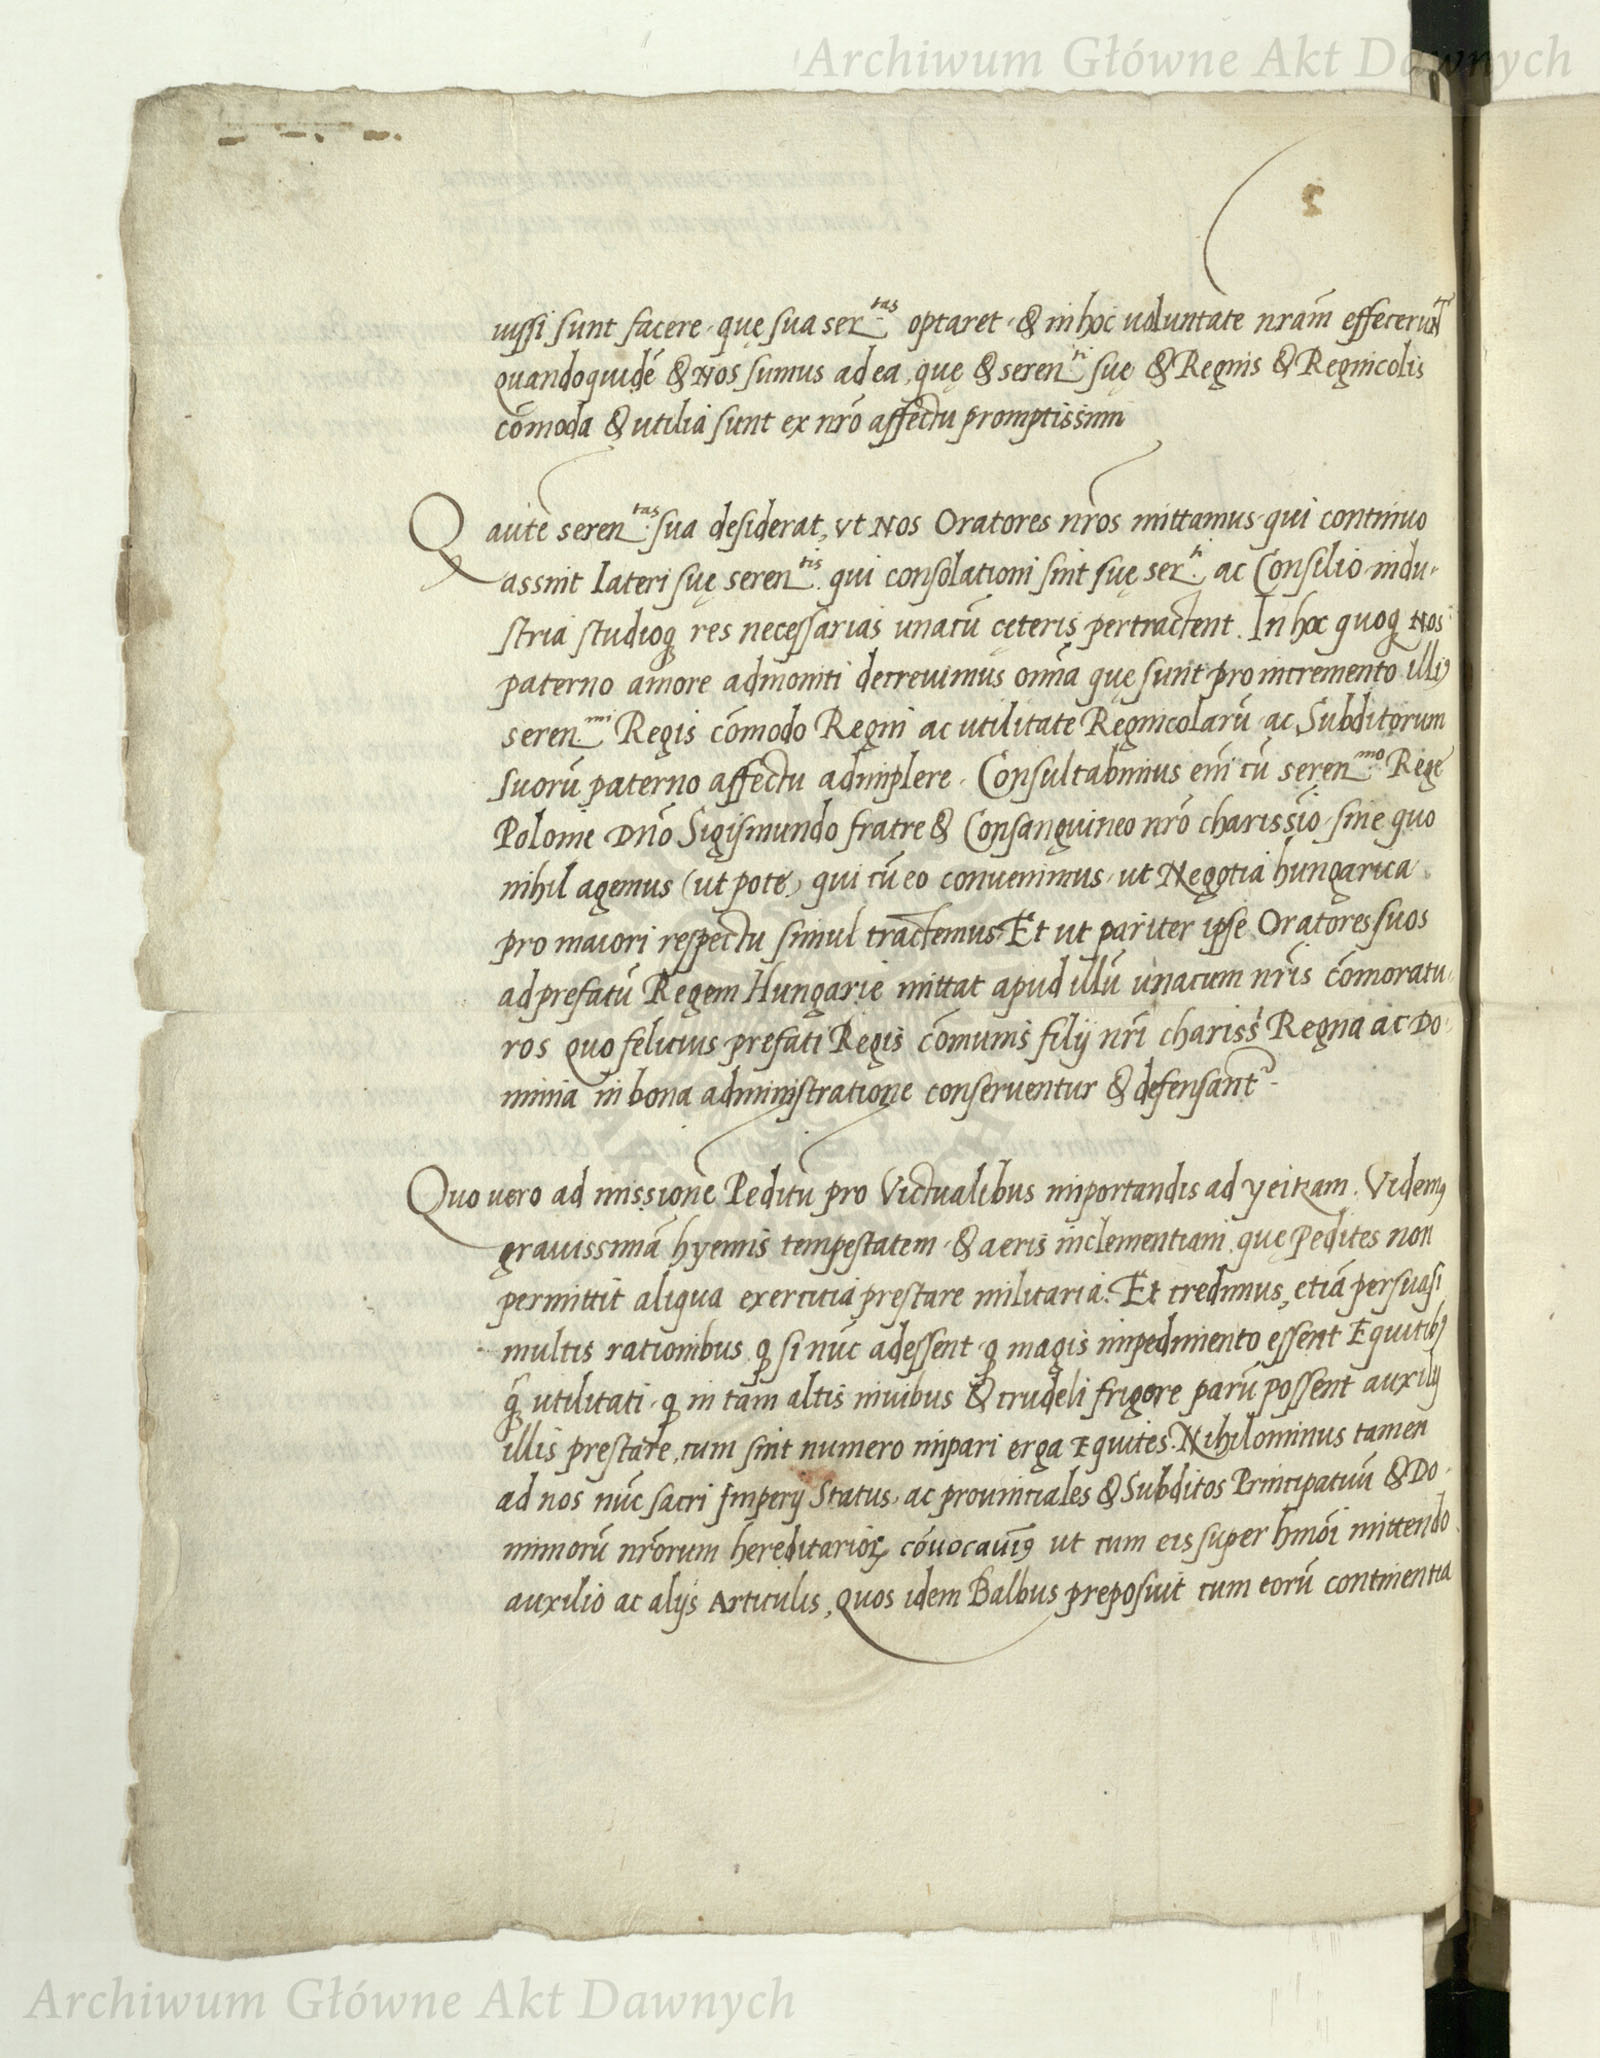 Archiwum Główne Akt Dawnych
2
iussi sunt facere · quę sua ser.tas optaret · & in hoc uoluntatē nrām effecerunt
quandoquidē & Nos sumus ad ea, quę & seren.ti suę & Regnis & Regnicolis
cōmoda & utilia sunt ex nrō affectu promptissimi
Q autē seren.tas sua desiderat, vt Nos Oratores nrōs mittamus qui continuo
assint lateri suę seren.tis qui consolationi sint suę ser.ti ac Consilio indu-
stria studioq; res necessarias unacū cęteris pertractent. In hoc quoq; Nos
paterno amore admoniti decreuimus om̄ia que sunt pro incremento illius
seren.mi Regis cōmodo Regni ac utilitate Regnicolarū ac Subditorum
suorū paterno affectu adimplere. Consultabimus em̄ cū seren.mo Rege
Polonie Dnō Sigismundo fratre & Consanguineo nrō charissīo sine quo
nihil agemus (ut pote) qui cū eo conuenimus ut Negotia hungarica
pro maiori respectu simul tractemus. Et ut pariter ipse Oratores suos
ad prefatū Regem Hungarie mittat apud illū unacum nrīs cōmoratu-
ros quo felicius prefati Regis cōmunis filij nrī chariss: Regna ac Do-
minia in bona administratione conseruentur & defensant~
Quo uero ad missionē Peditū pro Victualibus importandis ad yeitzam. Videmus
grauissimā hyemis tempestatem · & aeris inclementiam, quę Pedites non
permittit aliqua exercitia prestare militaria. Et credimus, etiā persuasi
multis rationibus q; si nūc adessent q; magis impedimento essent Equitibus
q̄ utilitati · q; in tam altis niuibus & crudeli frigore parū possent auxilij
illis prestare, cum sint numero impari erga Equites. Nihilominus tamen
ad nos nūc sacri Imperij Status, ac prouinciales & Subditos Principatuū & Do-
miniorū nrōrum hereditarior̄ cōuocauim9 ut cum eis super hmōi mittendo
auxilio ac alijs Articulis, quos idem Balbus preposuit cum eorū continentia
Archiwum Główne Akt Dawnych